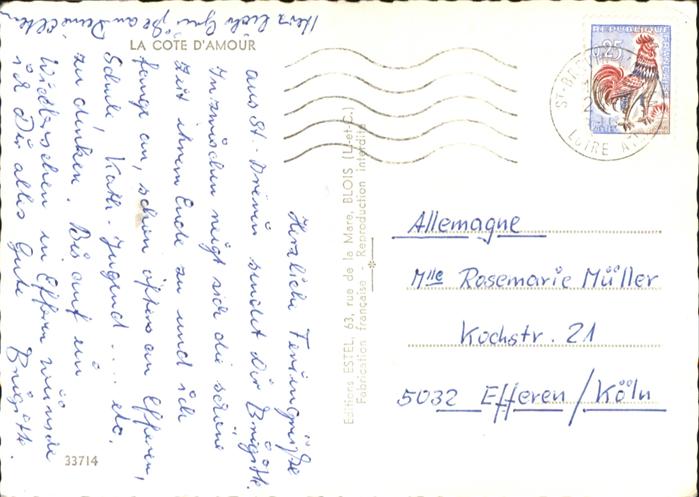 LA COTE D'AMOUR
Herzliche Feriengrüße
aus St. Brévin sendet dir Brigitte.
Inzwischen neigt sich die schöne
Zeit ihrem Ende zu und ich
fange an, schon öfters an Efferen,
Schule, Kath. Jugend .... etc.
zu denken. Bis auf ein
Wiedersehen in Efferen wünscht
ich Dir alles Gute
Brigitte.
Herzliche
an Deine Eltern
33714
Editions ESTEL, 63, rue de la Mare, BLOIS (L.-et-C.)
Fabrication française - Reproduction interdite
REPUBLIQUE FRANÇAISE
0,25
ST-BR
LOIRE
Allemagne
Mlle Rosemarie Müller
Kochstr. 21
5032 Efferen/Köln